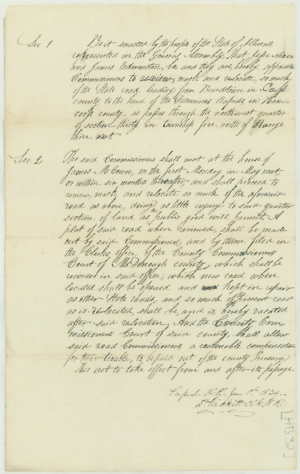 Sec 1 Be it enacted by the people of the State of Illinois
represented in the General Assembly, That
and James Edmonston, be and they are hereby appointed
Commissioners to review, mark and relocate, so much
of the State road leading from Beardstown in Cass
county to the head of the Desmoines Rapids in Han-
cock county, as passes through the northwest quarter
of section thirty in township five north of Range
three west.
Sec 2. The said Commissioners shall meet at the house of
James McCown, on the first Monday in May next
or within six months thereafter, and shall proceed to
review, mark, and relocate so much of the aforesaid
road as above, doing as little injury to said quarter
section of land as public good will permit. A
plat of said road when reviewed, shall be made
out by said Commissioners, and by them filed in
the Clerks office of the County Commissioners
Court of McDonough county, which shall be
recorded in said office, which new road when
located shall be opened and kept in repair
as other State roads, and so much of present road
as is relocated, shall be, and is hereby vacated
after said relocation, And the County Com-
missioners Court of said county, shall allow
said road Commissioners a reasonable compensation
for their trouble, to be paid out of the county Treasury.
This act to take effect from and after its passage